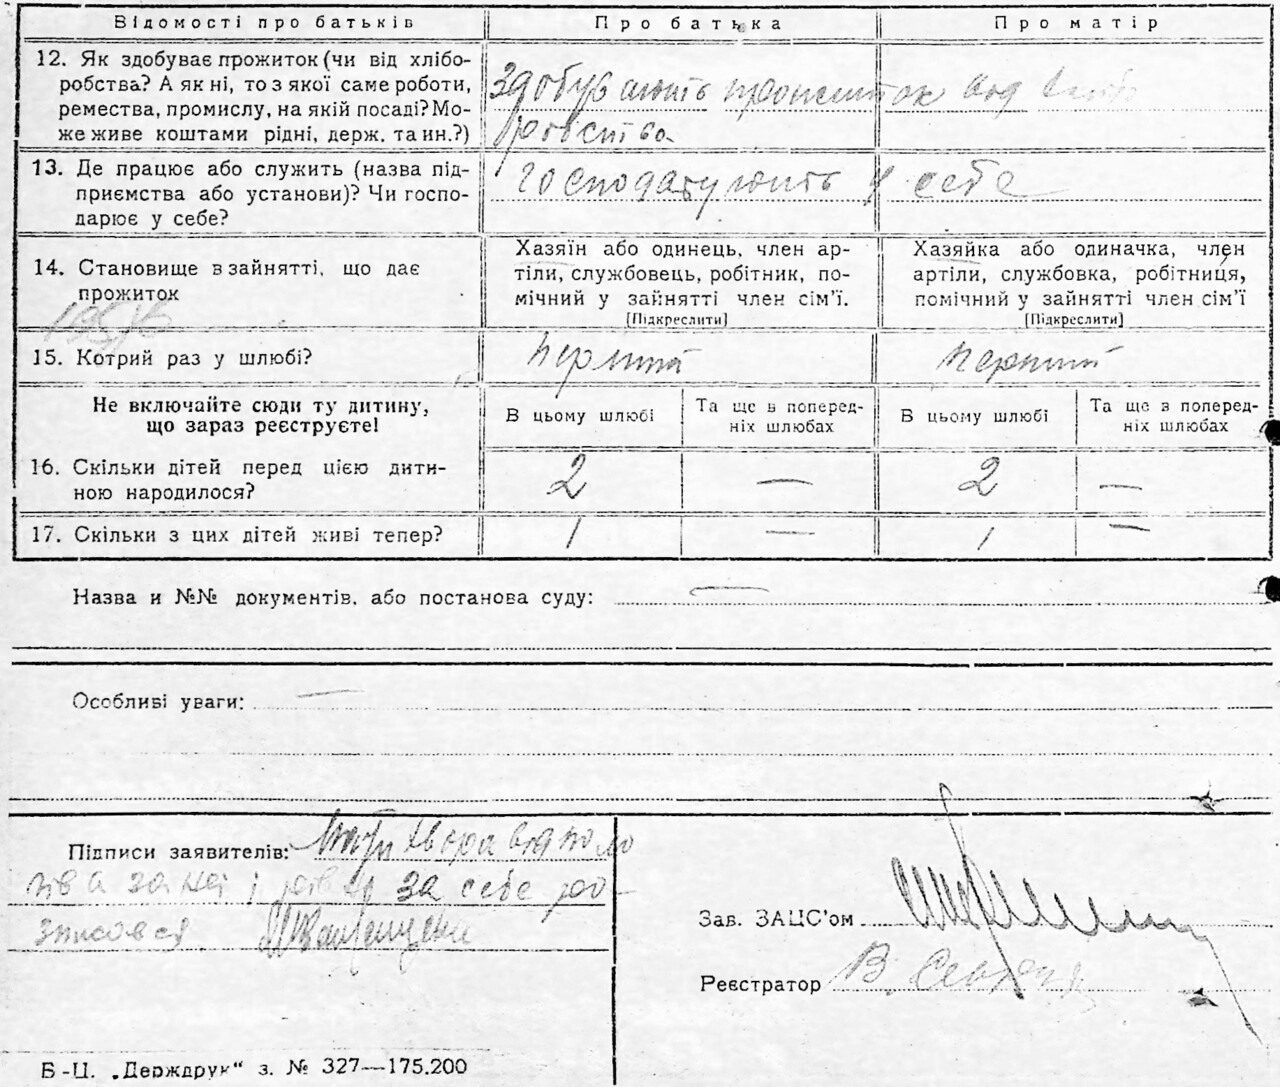 Відомості про батьків
Про батька
Про матір
12. Як здобуває прожиток (чи від хлібо-
робства? А як ні, то з якої саме роботи,
ремества, промислу, на якій посаді? Мо-
же живе коштами рідні, держ. та ин.?)
Здобувають прожиток від хлібо
робства
13. Де працює або служить (назва під-
приємства або установи)? Чи госпо-
дарює у себе?
Господарують у себе
14. Становище в зайнятті, що дає
прожиток
Хазяїн або одинець, член ар-
тіли, службовець, робітник, по-
мічний у зайнятті член сім'ї.
[Підкреслити]
Хазяйка або одиначка, член
артіли, службовка, робітниця,
помічний у зайнятті член сім'ї
[Підкреслити]
15. Котрий раз у шлюбі?
перший
перший
Не включайте сюди ту дитину,
що зараз реєструєте!
В цьому шлюбі
Та ще в поперед-
ніх шлюбах
В цьому шлюбі
Та ще в поперед-
ніх шлюбах
16. Скільки дітей перед цією дити-
ною народилося?
2
—
2
—
17. Скільки з цих дітей живі тепер?
1
—
1
—
Назва и №№ документів, або постанова суду: —
Особливі уваги: —
Підписи заявителів: хвора від поло
за неї і за себе ро-
Зав. ЗАЦС'ом
Реєстратор В.
Б-Ц. „Держдрук" з. № 327—175.200